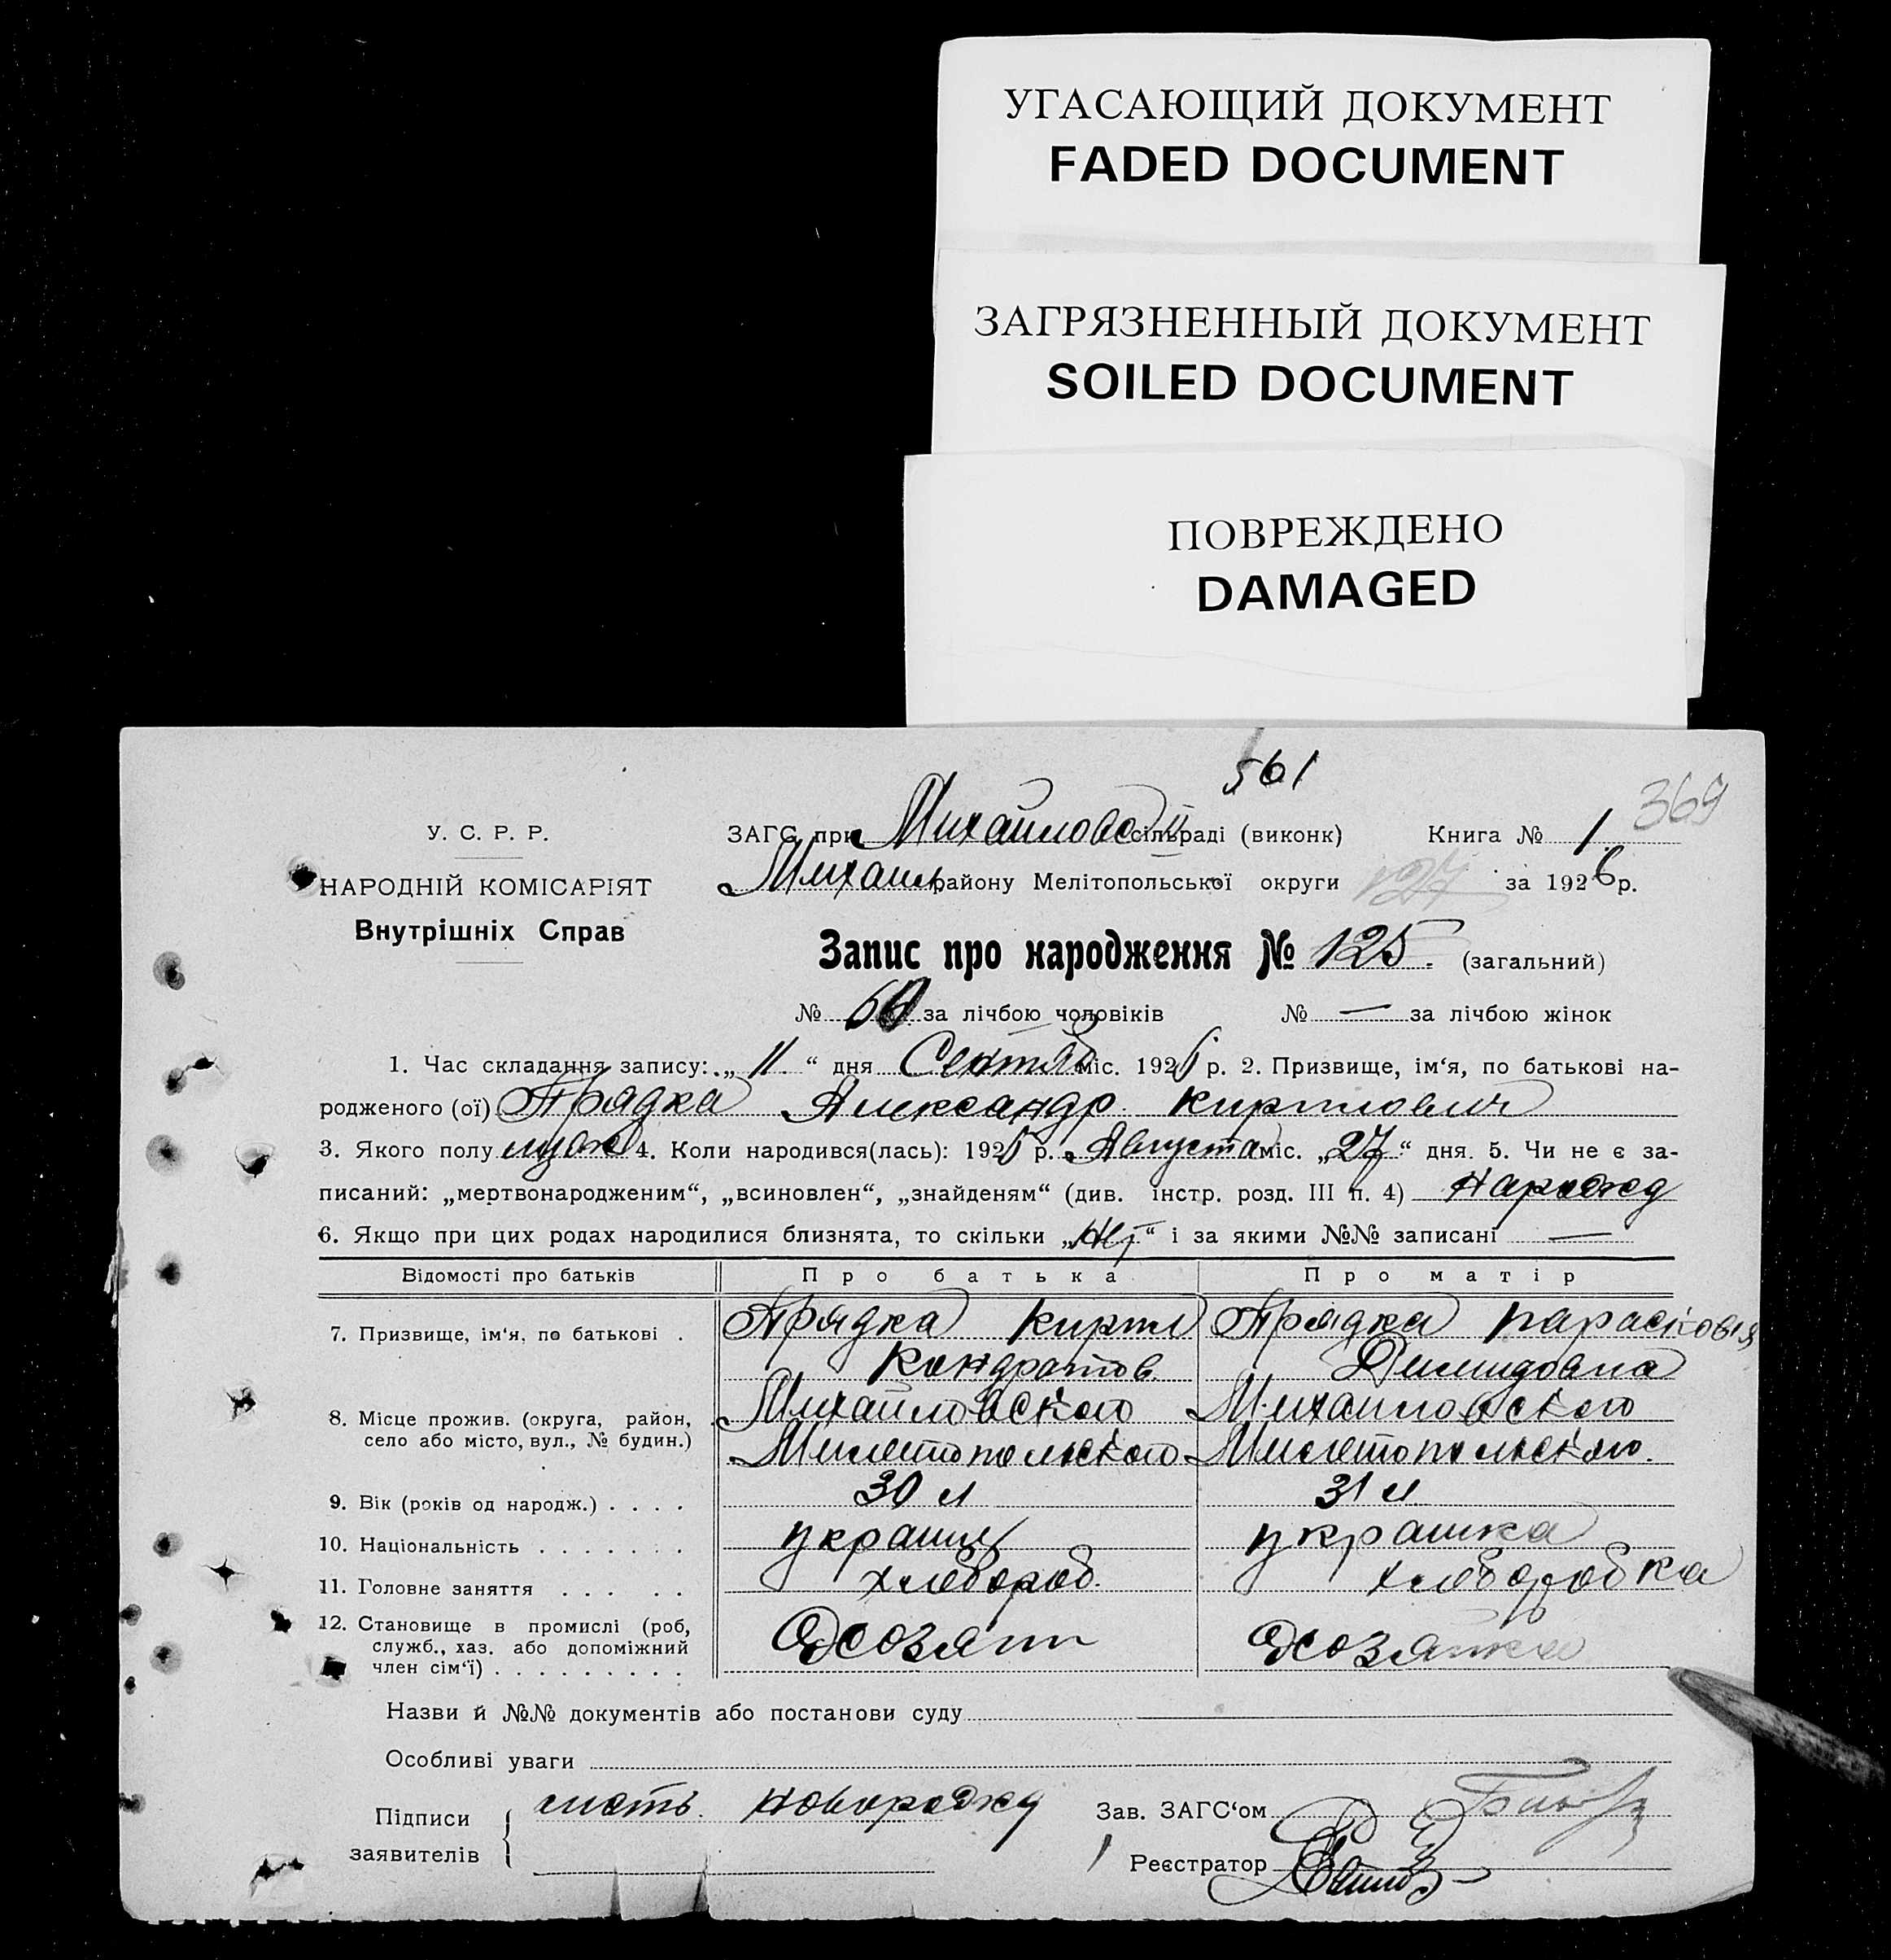 УГАСАЮЩИЙ ДОКУМЕНТ
FADED DOCUMENT
ЗАГРЯЗНЕННЫЙ ДОКУМЕНТ
SOILED DOCUMENT
ПОВРЕЖДЕНО
DAMAGED
561
369
У. С. Р. Р.
ЗАГС при Михайловской сільраді (виконк) Книга № 1.
НАРОДНІЙ КОМІСАРІЯТ
Михайл. району Мелітопольської округи 127 за 1926 р.
Внутрішніх Справ
Запис про народження № 125. (загальний)
№ 60 за лічбою чоловіків № — за лічбою жінок
1. Час складання запису: „ 11 “ дня Сентяб міс. 1926 р. 2. Призвище, ім‘я, по батькові на-
родженого (ої) Прядка Александр Кирилович
3. Якого полу муж 4. Коли народився(лась): 192 р. Августа міс. „27“ дня. 5. Чи не є за-
писаний: „мертвонародженим“, „всиновлен“, „знайденям“ (див. інстр. розд. III п. 4) Нарожд
6. Якщо при цих родах народилися близнята, то скільки „ “ і за якими №№ записані —
Відомості про батьків Про батька Про матір
7. Призвище, ім‘я, по батькові . Прядка Кирил Прядка Парасковія
Кондратов. Демидовна
8. Місце прожив. (округа, район, Михайловского Михайловского
село або місто, вул., № будин.) Мелетопольского Мелетопольского.
9. Вік (років од народж.) . . . . 30 л 31 л
10. Національність . . . . . . . украинц украинка
11. Головне заняття . . . . . хлебороб. хлеборобка
12. Становище в промислі (роб,
служб., хаз. або допоміжний хозяин хозяйка
член сім‘ї) . . . . . . . . . .
Назви й №№ документів або постанови суду
Особливі уваги
Підписи мать новорожд Зав. ЗАГС‘ом
заявителів Реєстратор